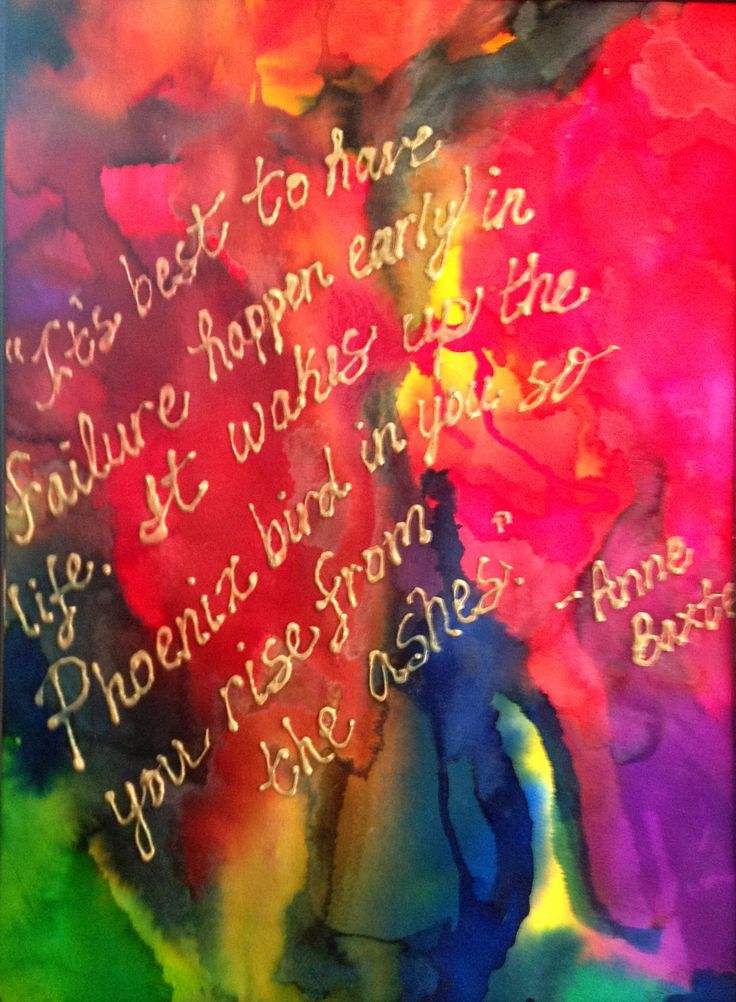 "It's best to have
failure happen early in
life. It wakes up the
Phoenix bird in you so
you rise from
the ashes."
~Anne
Baxte